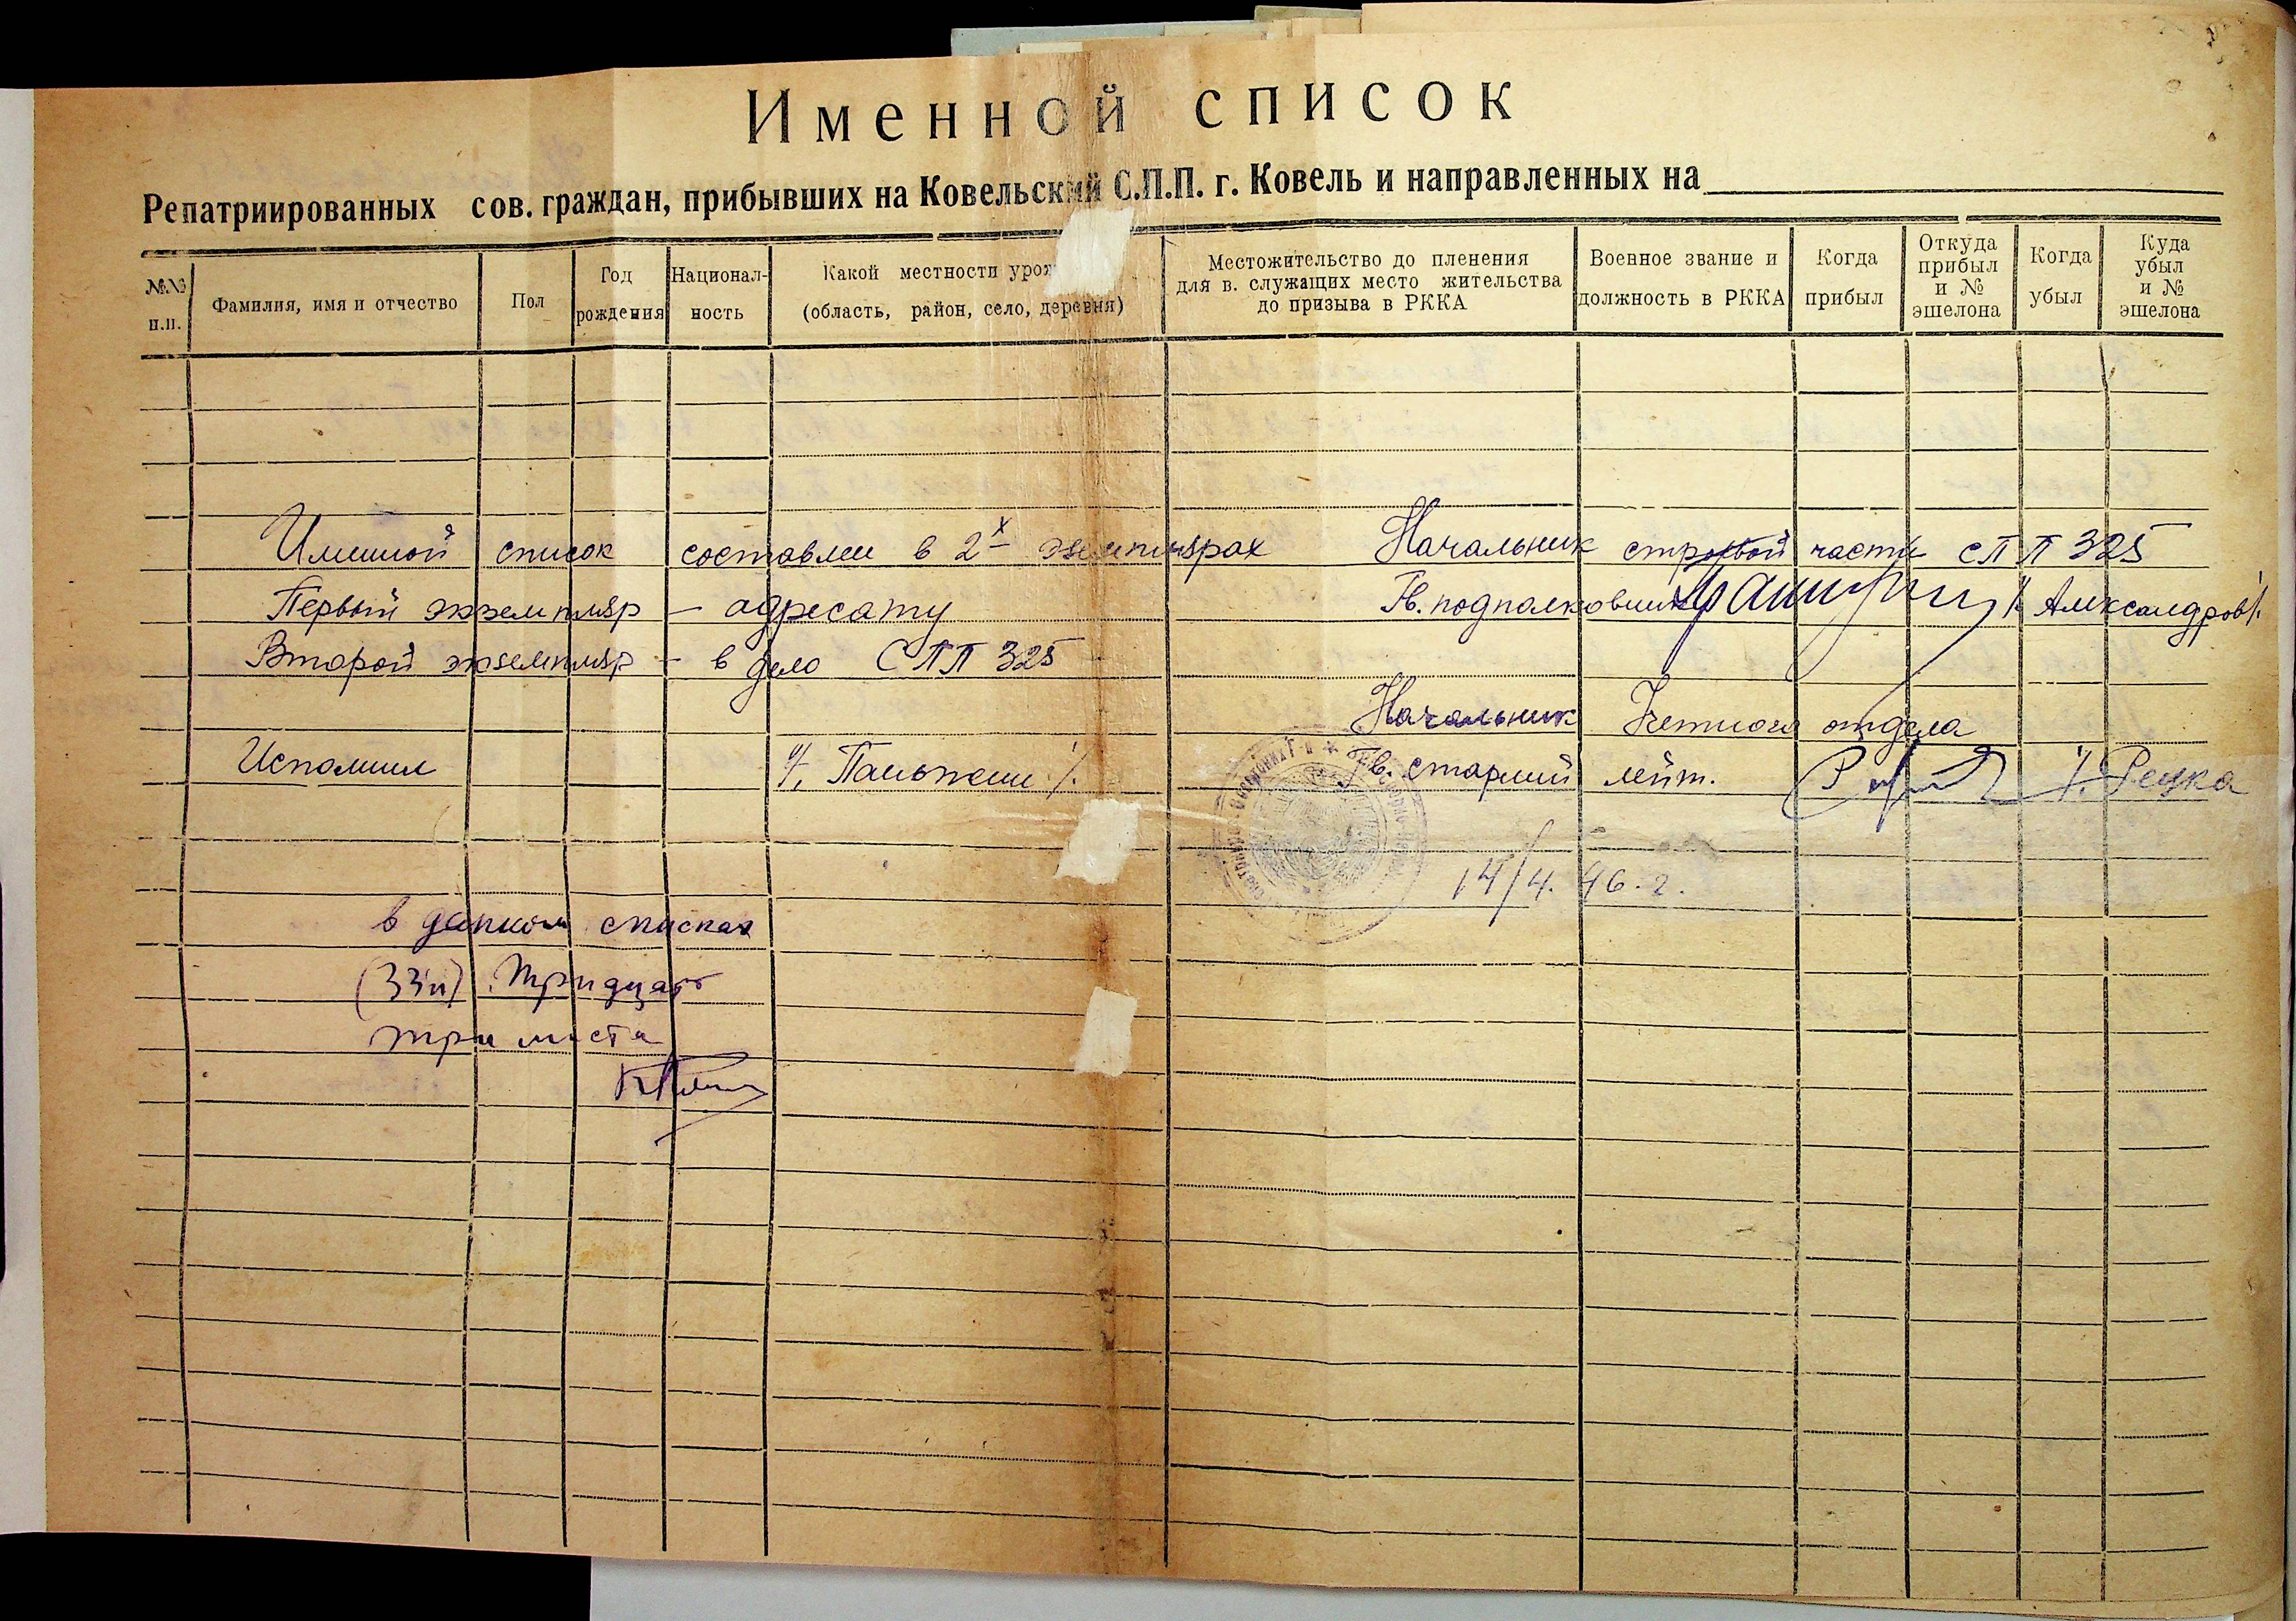 Именной список
Репатриированных сов. граждан, прибывших на Ковельский С.П.П. г. Ковель и направленных на
№№ п.п.
Фамилия, имя и отчество
Пол
Год рождения
Националь-ность
Какой местности урож
(область, район, село, деревня)
Местожительство до пленения
для в. служащих место жительства
до призыва в РККА
Военное звание и
должность в РККА
Когда прибыл
Откуда прибыл и № эшелона
Когда убыл
Куда убыл и № эшелона
Именной список составлен в 2х экземплярах
Первый экземпляр — адресату
Второй экземпляр — в дело СПП 325
Исполнил
Начальник строевой части СПП 325
Гв. подполковник /Александров/.
Начальник Учетного отдела
Гв. старший лейт. /. Рецка
14/4. 46. г.
в данном списках
(33и) тридцать
три листа